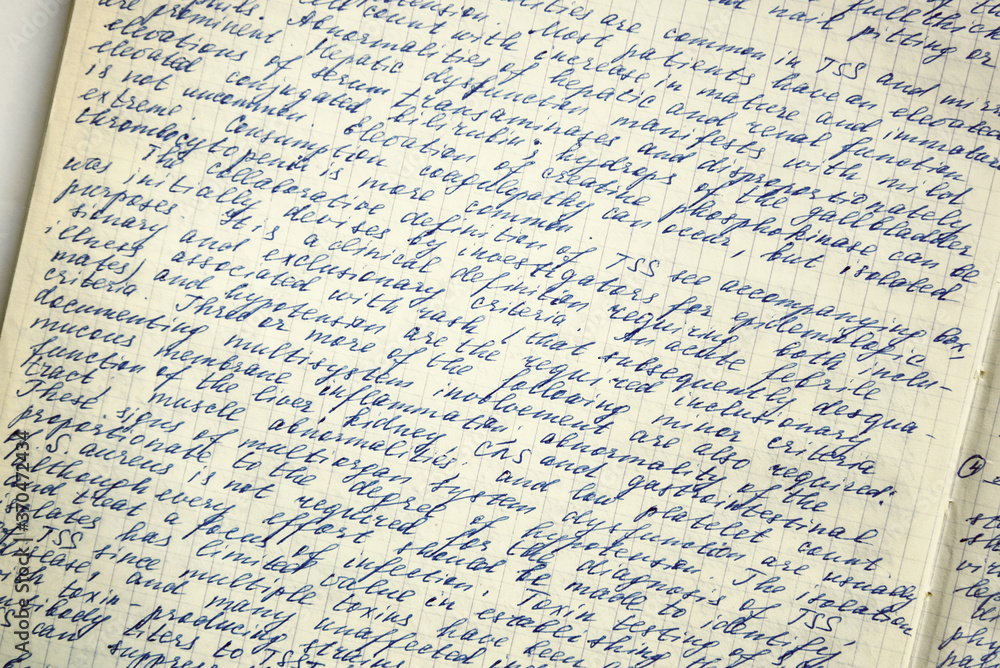 and nail pitting or
full thick
abnormalities are common in TSS and mirr
hypotension. Most patients have an elevated
account with increase in mature and immature
are prominent. Abnormalities of hepatic and renal function
elevations Hepatic dysfunction manifests with mild
elevated of serum transaminases and disproportionately
is not conjugated bilirubin; hydrops of the gallbladder
extreme uncommon. Elevation of creatine phosphokinase can be
thrombocytopenia is more common.
consumption coagulopathy can occur, but isolated
The collaborative definition of TSS see accompanying box,
was initically devises by investigators for epidemiologic
purposes. It is a clinical definition requiring both inclu-
sionary and exclusionary criteria. An acute febrile
illness associated with rash, that subsequently desqua-
mates, and hypotension are the required inclusionary
criteria. Three or more of the following minor criteria
documenting multisystem involvement are also required:
mucous membrane inflammation, abnormality of the
function of the liver, kidney, CNS and gastrointestinal
tract, muscle abnormalities and low platelet count.
These signs of multiorgan system dysfunction are usually
proportionate to the degree of hypotension. The isolation
of S. aureus is not required for the diagnosis of TSS,
although every effort should be made to identify
and treat a focus of infection. Toxin testing of
isolates has limited value in establishing
TSS since multiple toxins have been
and many unaffected
toxin-producing strains
body
can titers to TSST
suppress
Adobe Stock | #370472434